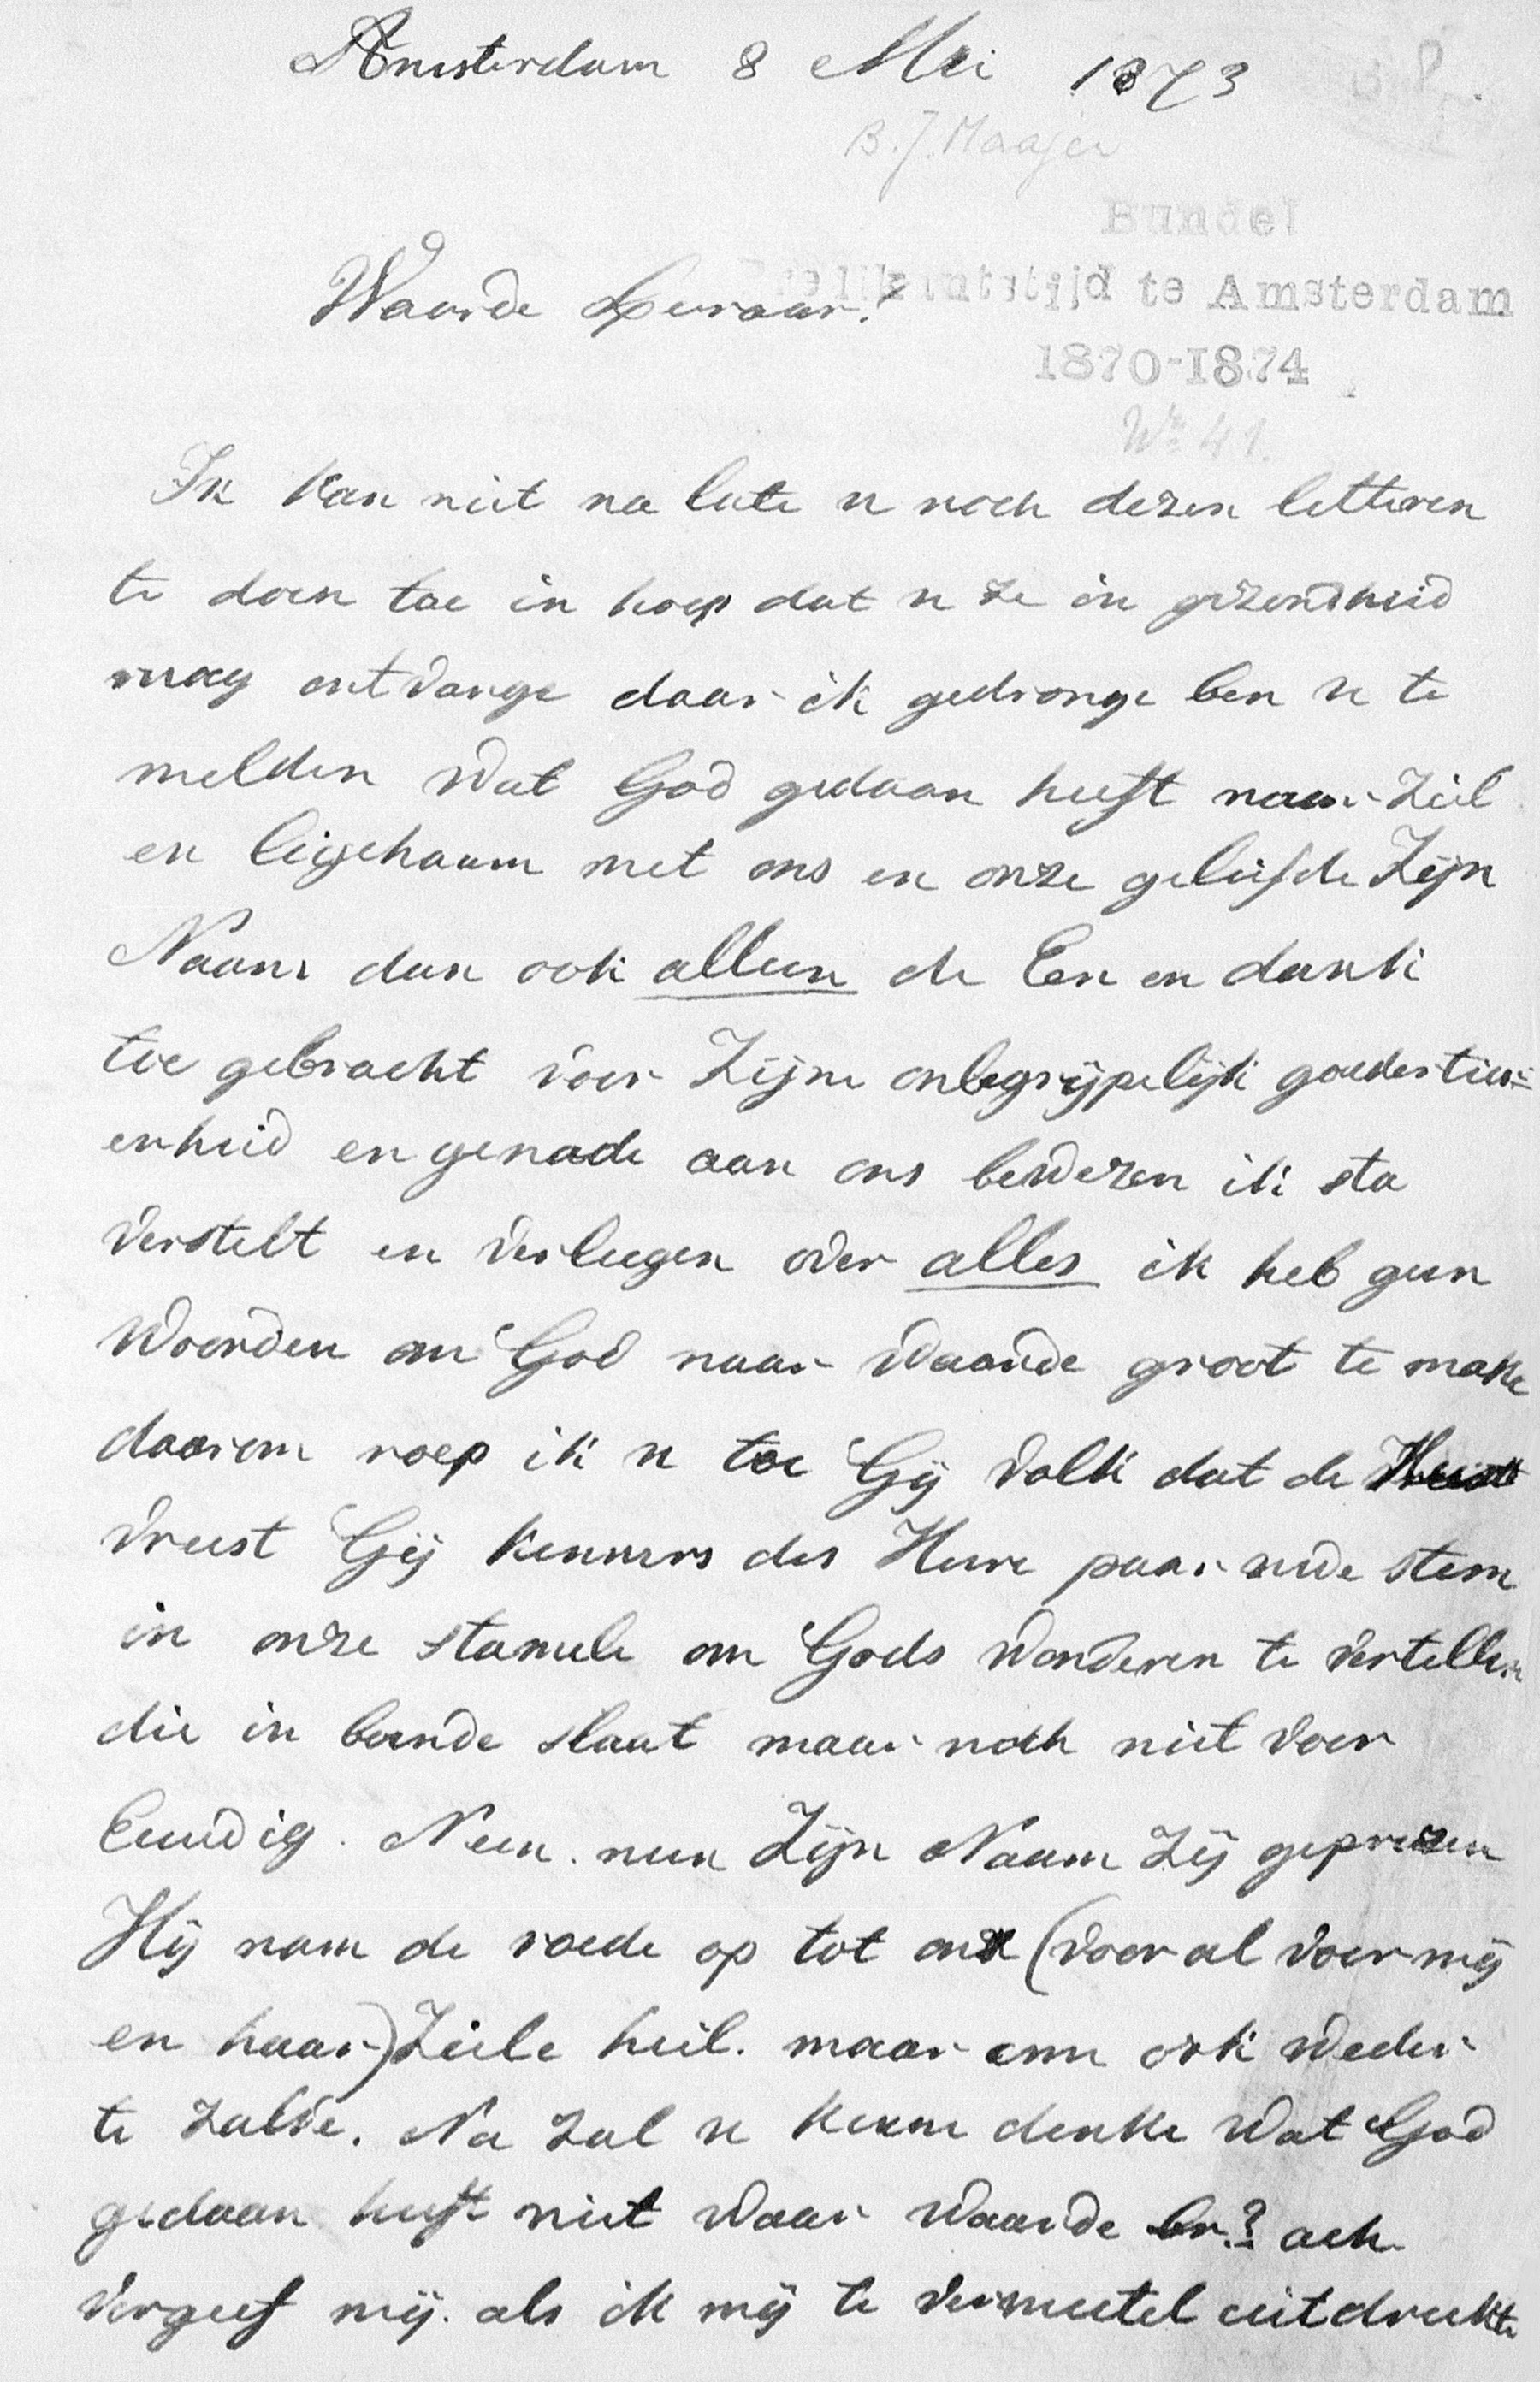 Amsterdam 8 Mei 1873
B.J. Maajer
Bundel
te Amsterdam
1870-1874
No 41.
Waarde Leeraar!
Ik kan niet na late u noch dezen letteren
te doen toe in hoop dat u ze in gezondheid
mag ontvange daar ik gedronge ben u te
melden wat God gedaan heeft naar Ziel
en ligehaam met ons en onze geliefde Zijn
Naam dan ook alleen de Eer en dank
toe gebracht voor Zijne onbegrijpelijk goedertier=
enheid en genade aan ons bewezen ik sta
verstelt en verleegen over alles ik heb geen
woorden om God naar waarde groot te make
daarom roep ik u toe Gij volk dat de
vreest Gij kenners des Heere paar uwe stem
in onze stamele om Gods wonderen te vertellen
die in bende slaat maar noch niet voor
Eeuwig. Neen. neen Zijn Naam Zij geprezen
Hij nam de roede op tot onze (voor al voor mij
en haar) Ziele heil. maar om ook weder
te zalve. Na zal u kenne denke wat God
gedaan heeft niet waar waarde br.? ach
vergeef mij. als ik mij te vermeetel uitdrukte